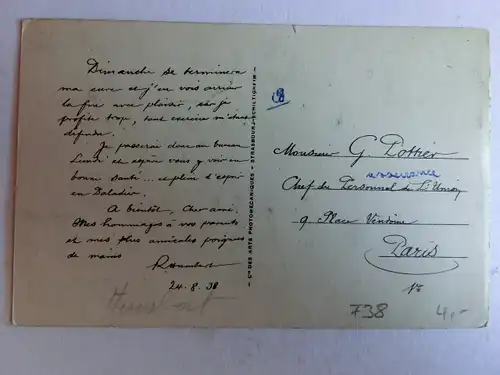 Dimanche se terminera
ma cure et j'en vois arriver
la fin avec plaisir, car je
profite trop, tout exercice m'étant
défendu.
Je passerai donc au bureau
Lundi et espère vous y voir en
bonne santé et plein d'espoir
en Daladier.
A bientôt, cher ami.
Mes hommages à vos parents
et mes plus amicales poignées
de mains
24.8.38
— Cie DES ARTS PHOTOMÉCANIQUES - STRASBOURG-SCHILTIGHEIM —
Monsieur G. Pottier
assurance
Chef du Personnel de L'Union
9 Place Vendôme
Paris
1er
738
4,-